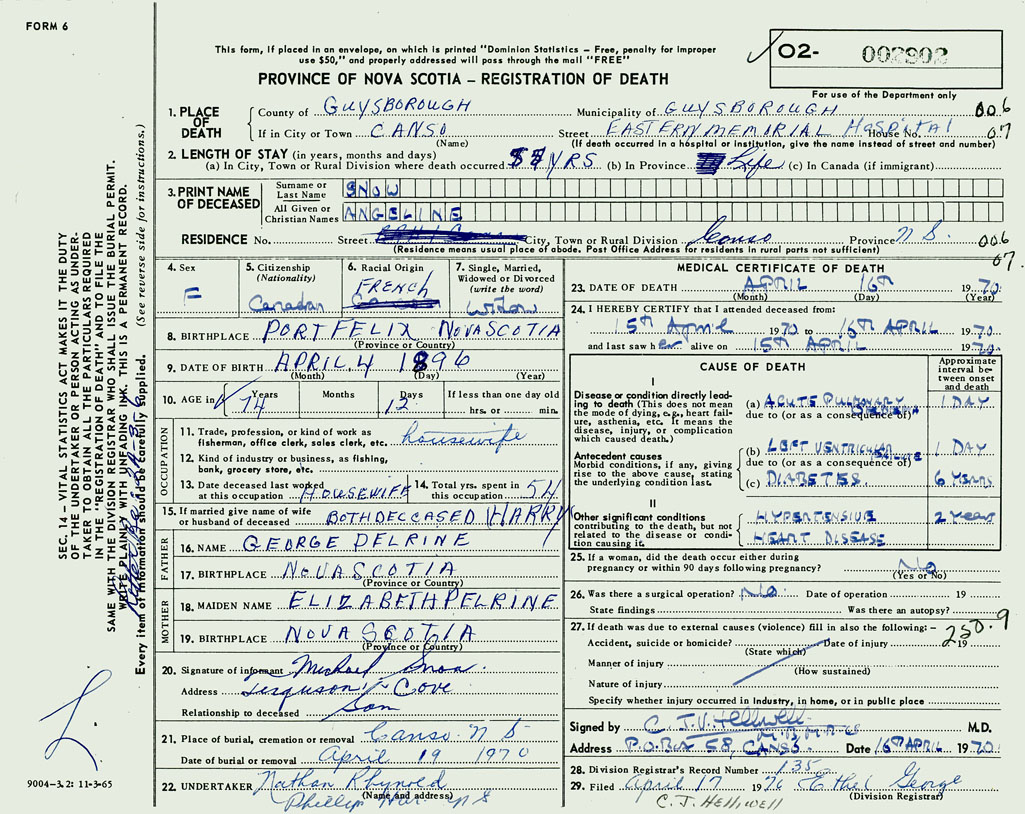 FORM 6
This form, if placed in an envelope, on which is printed "Dominion Statistics – Free, penalty for improper
use $50," and properly addressed will pass through the mail "FREE"
PROVINCE OF NOVA SCOTIA – REGISTRATION OF DEATH
O2- 002902
For use of the Department only
1. PLACE OF DEATH
County of GUYSBOROUGH Municipality of GUYSBOROUGH 006
If in City or Town CANSO Street EASTERN MEMORIAL HOSPITAL House No. 07
(Name) (If death occurred in a hospital or institution, give the name instead of street and number)
2. LENGTH OF STAY (in years, months and days)
(a) In City, Town or Rural Division where death occurred YRS (b) In Province Life (c) In Canada (if immigrant)
3. PRINT NAME OF DECEASED
Surname or Last Name SNOW
All Given or Christian Names ANGELINE
RESIDENCE No. Street City, Town or Rural Division Canso Province N S. 006
(Residence means usual place of abode. Post Office Address for residents in rural parts not sufficient) 07.
4. Sex F
5. Citizenship (Nationality) Canadian
6. Racial Origin FRENCH
7. Single, Married, Widowed or Divorced (write the word) Widow
8. BIRTHPLACE PORT FELIX NOVA SCOTIA
(Province or Country)
9. DATE OF BIRTH APRIL 4 1896
(Month) (Day) (Year)
10. AGE in Years 74 Months Days 12 If less than one day old hrs. or min.
OCCUPATION
11. Trade, profession, or kind of work as
fisherman, office clerk, sales clerk, etc. housewife
12. Kind of industry or business, as fishing,
bank, grocery store, etc.
13. Date deceased last worked
at this occupation HOUSEWIFE
14. Total yrs. spent in
this occupation 54
15. If married give name of wife
or husband of deceased BOTH DECEASED HARRY
FATHER
16. NAME GEORGE PELRINE
17. BIRTHPLACE NOVA SCOTIA
(Province or Country)
MOTHER
18. MAIDEN NAME ELIZABETH PELRINE
19. BIRTHPLACE NOVA SCOTIA
(Province or Country)
20. Signature of informant Michael Snow
Address Ferguson's Cove
Relationship to deceased Son
21. Place of burial, cremation or removal Canso N S
Date of burial or removal April 19 1970
22. UNDERTAKER Nathan
(Name and address)
N S
MEDICAL CERTIFICATE OF DEATH
23. DATE OF DEATH APRIL 16th 1970
(Month) (Day) (Year)
24. I HEREBY CERTIFY that I attended deceased from:
15th April 1970 to 16th APRIL 1970
and last saw her alive on 15th APRIL 1970
CAUSE OF DEATH
Approximate interval between onset and death
I
Disease or condition directly leading to death (This does not mean the mode of dying, e.g., heart failure, asthenia, etc. It means the disease, injury, or complication which caused death.)
(a) ACUTE PULMONARY OEDEMA 1 DAY
due to (or as a consequence of)
Antecedent causes
Morbid conditions, if any, giving rise to the above cause, stating the underlying condition last.
(b) LEFT VENTRICULAR FAILURE 1 DAY
due to (or as a consequence of)
(c) DIABETES 6 YEARS
II
Other significant conditions contributing to the death, but not related to the disease or condition causing it.
HYPERTENSIVE 2 Years
HEART DISEASE
25. If a woman, did the death occur either during
pregnancy or within 90 days following pregnancy? No
(Yes or No)
26. Was there a surgical operation? No. Date of operation 19
State findings Was there an autopsy?
27. If death was due to external causes (violence) fill in also the following: – 250.9
Accident, suicide or homicide? Date of injury 19
(State which)
Manner of injury
(How sustained)
Nature of injury
Specify whether injury occurred in Industry, in home, or in public place
Signed by C. J. W. Helliwell M.D.
Address P.O. Box 58, CANSO. Date 16th APRIL 1970
28. Division Registrar's Record Number 135
29. Filed April 17 1970 Ethel George
(Division Registrar)
C. J. HELLIWELL
SEC. 14 – VITAL STATISTICS ACT MAKES IT THE DUTY
OF THE UNDERTAKER OR PERSON ACTING AS UNDER-
TAKER TO OBTAIN ALL THE PARTICULARS REQUIRED
IN THE "REGISTRATION OF DEATH" AND TO FILE THE
SAME WITH THE DIVISION REGISTRAR WHO SHALL ISSUE THE BURIAL PERMIT.
WRITE PLAINLY WITH UNFADING INK. THIS IS A PERMANENT RECORD.
Every item of information should be carefully supplied. (See reverse side for instructions.)
9004-3.2: 11-3-65